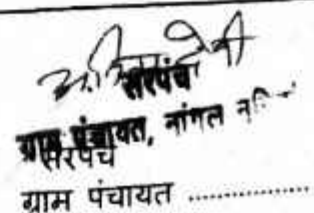 सरपंच
ग्राम पंचायत, नांगल
सरपंच
ग्राम पंचायत ..............